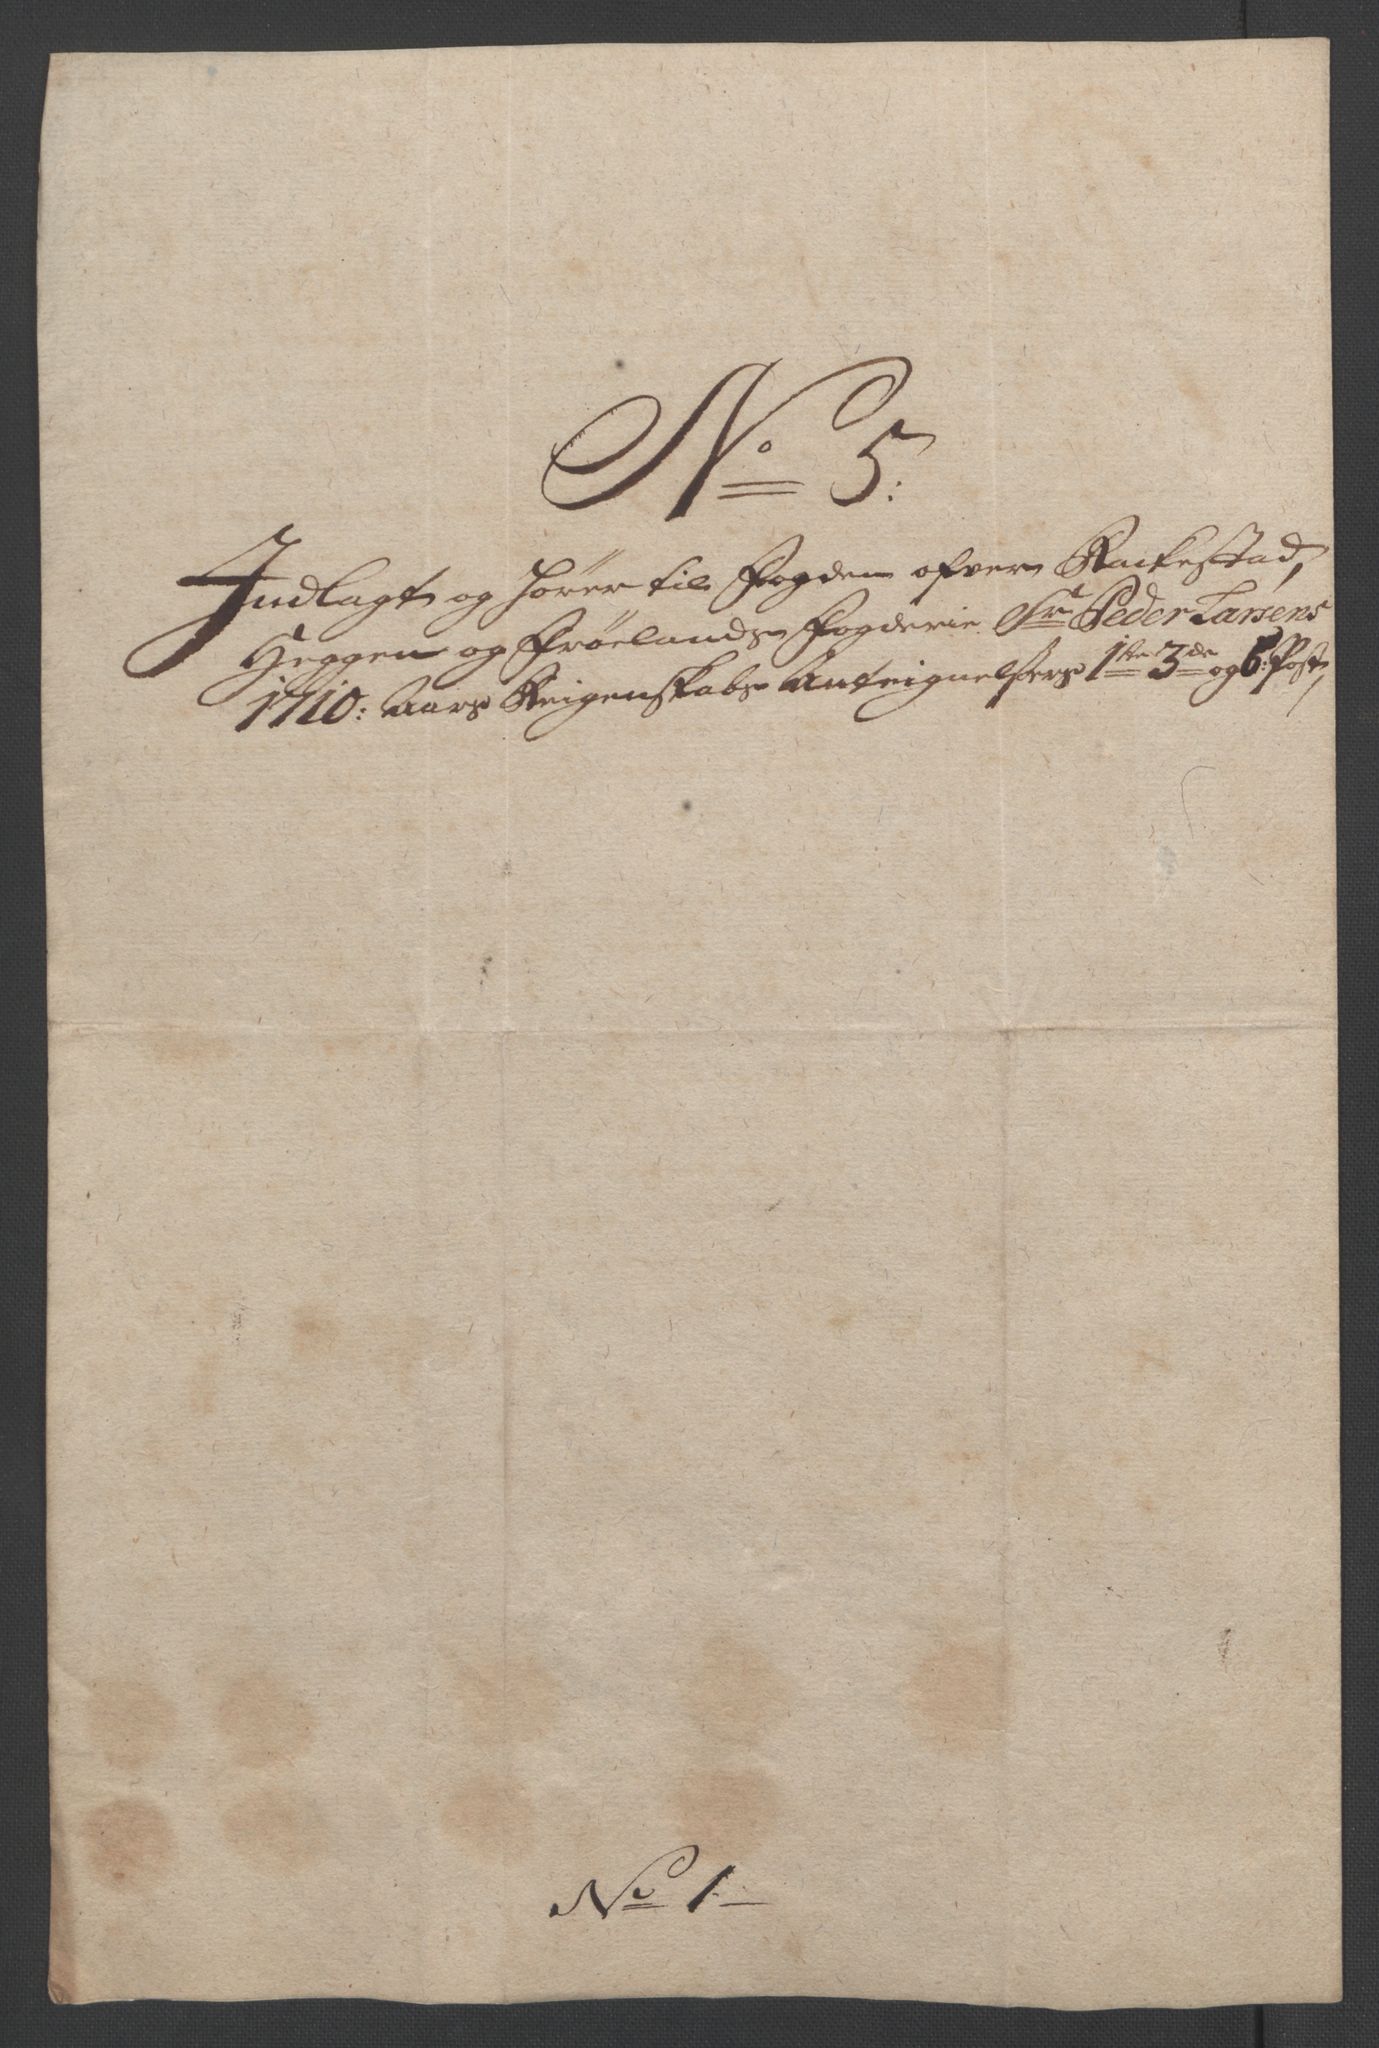 No 5:
Indlagt og hører til Fogden ofver Rackestad,
Heggen og Frøelands Fogderie Sr Peder Larsens
1710: Aars Reigenskabs Anteignelsers 1te 3de og 6: Post,
No 1